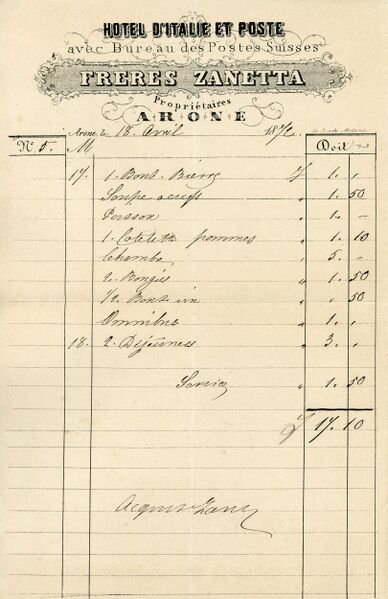 HOTEL D'ITALIE ET POSTE
avec Bureau des Postes Suisses
FRERES ZANETTA
Propriétaires
ARONE
Arone, le 18 Avril 187
N. 5. M Doit
17. 1. Bout. Bière f 1. ,
Soupe oeufs " 1. 50
Poisson " 1. –
1. Cotelette pommes " 1. 10
Chambre " 5. –
2. Bougies " 1. 50
1/2 Bout vin " , 50
Omnibus " 1. ,
18. 2. Déjeuners " 3. ,
Service " 1. 50
f 17. 10
Acquit Zan